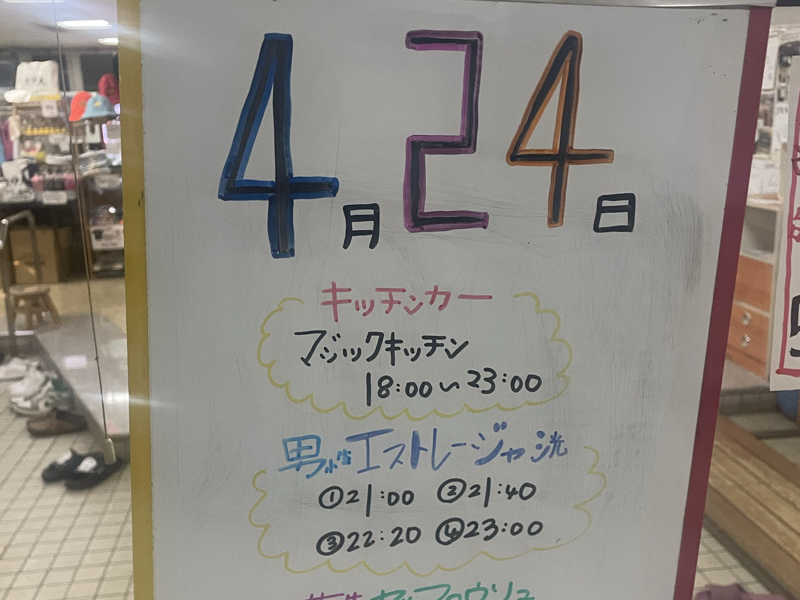 4月24日
キッチンカー
マジックキッチン
18:00〜23:00
エストレージャ
①21:00 ②21:40
③22:20 ④23:00